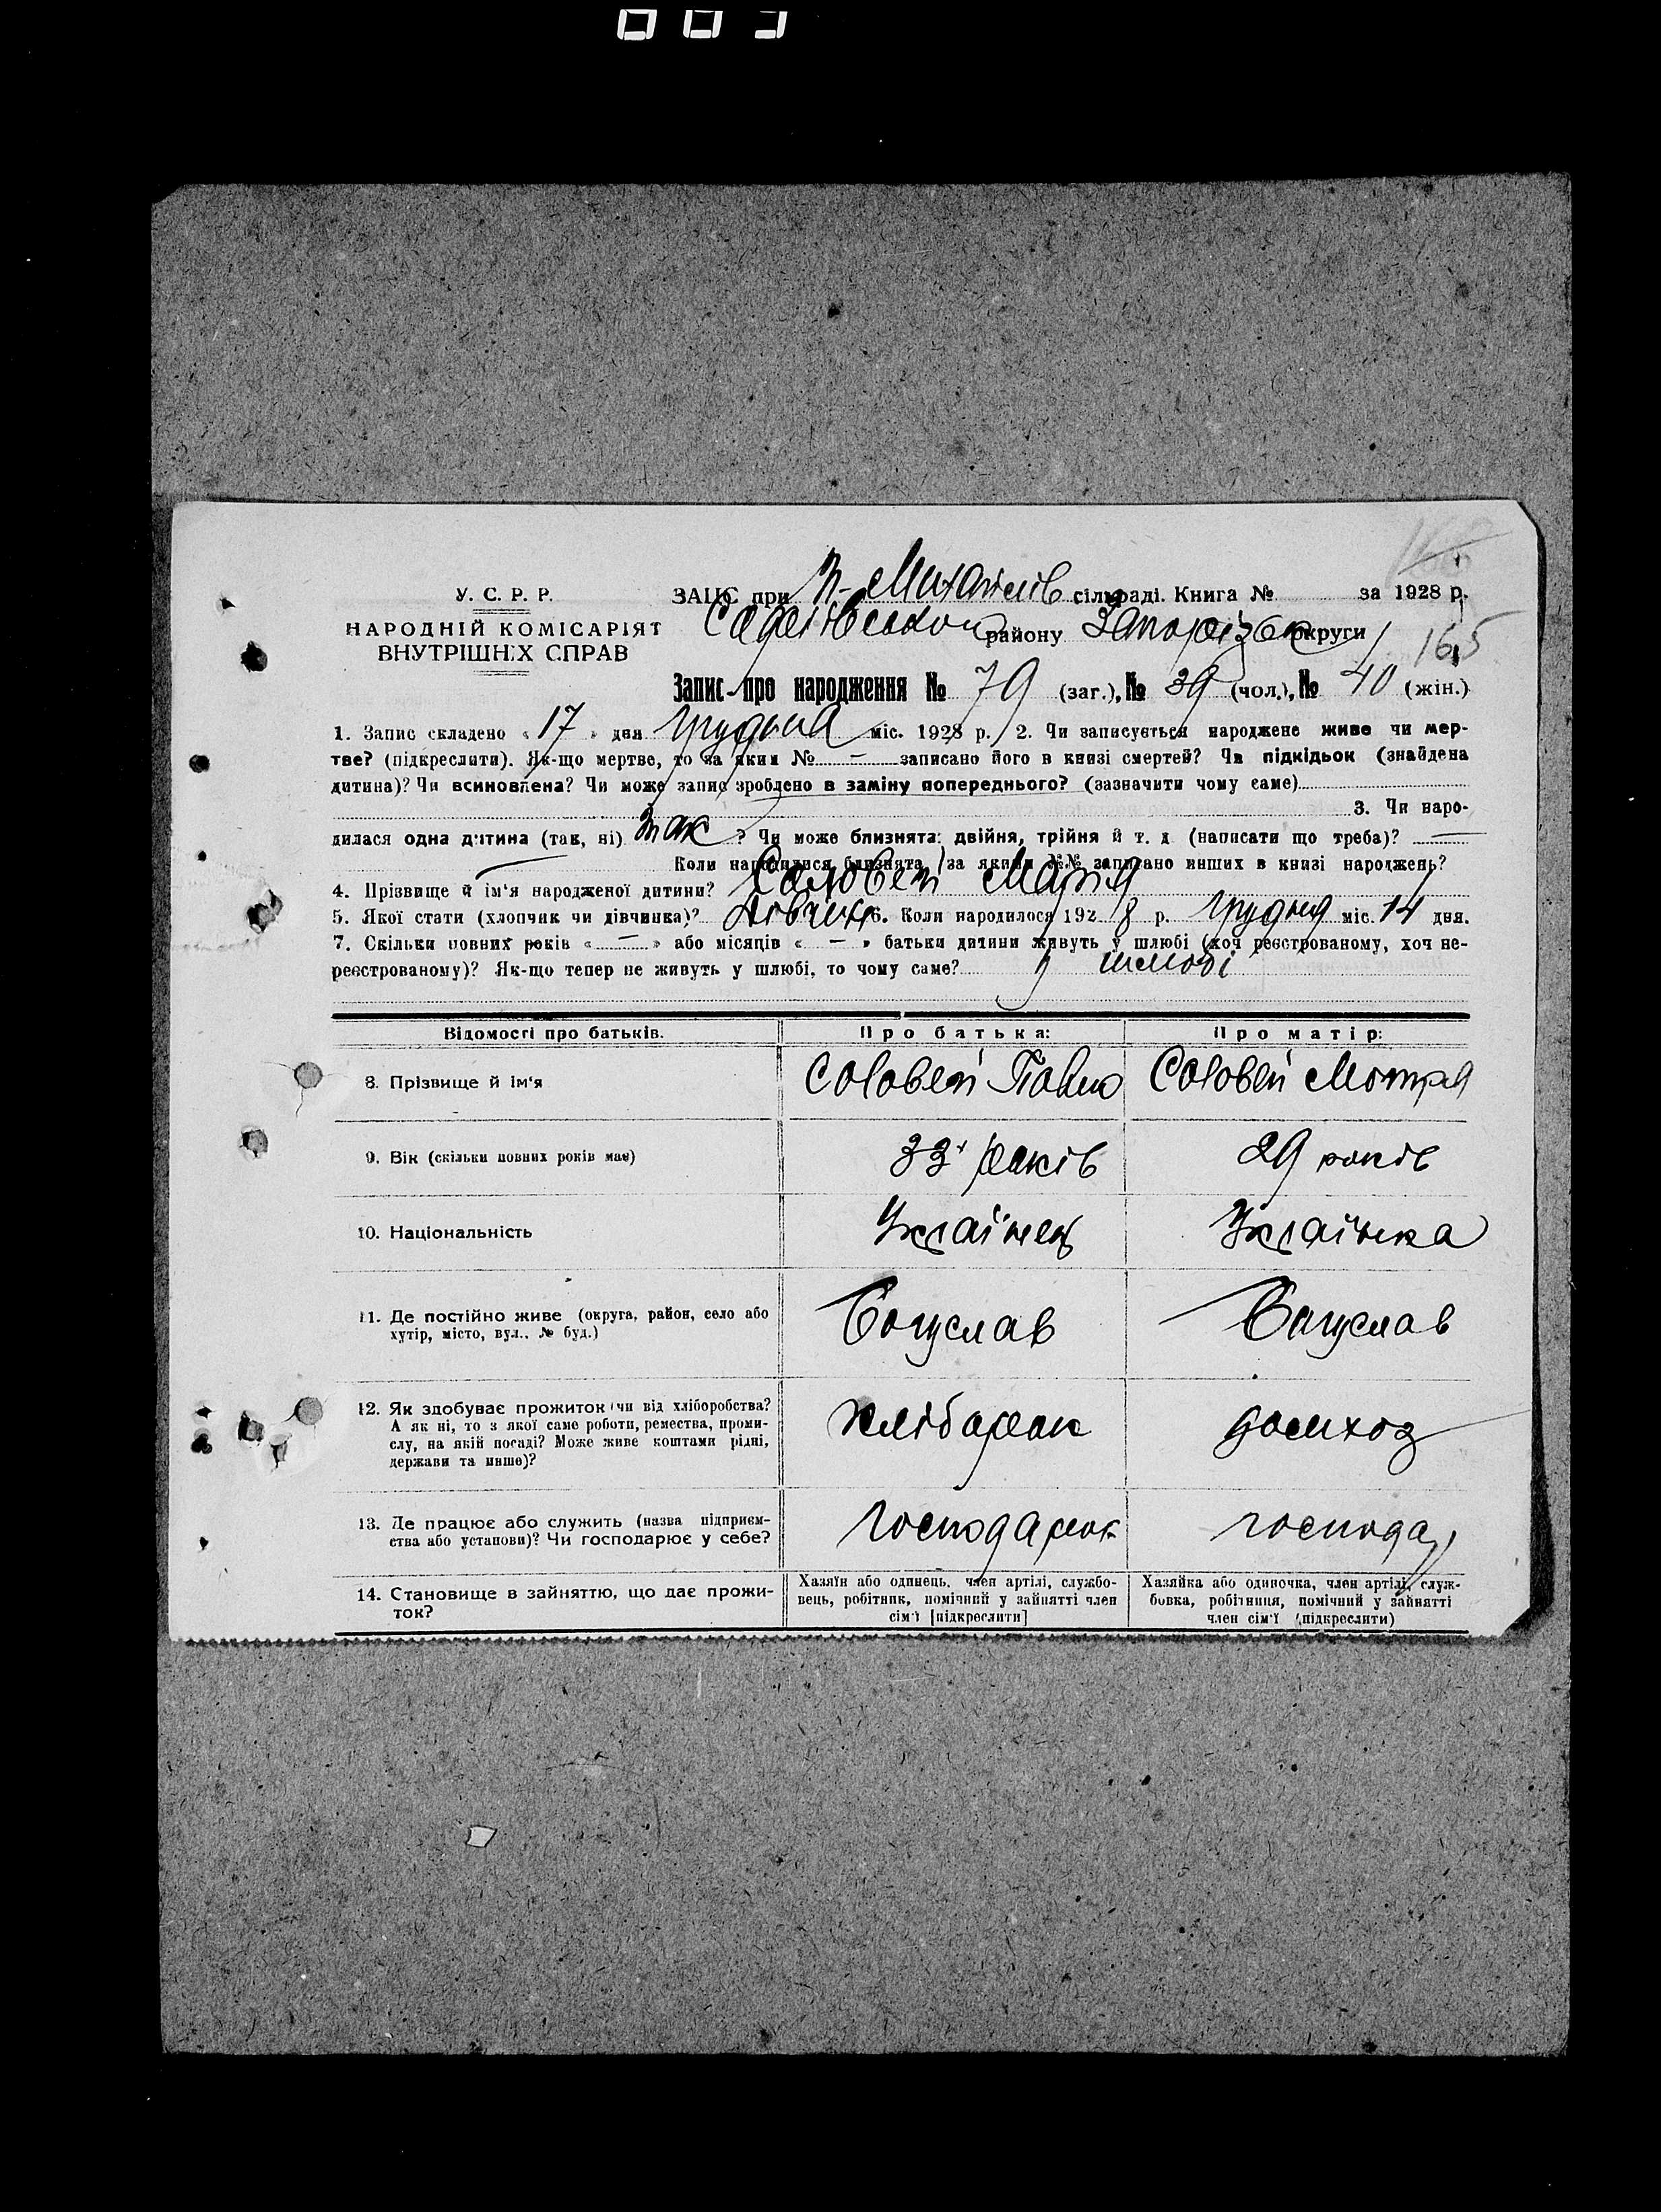 У. С. Р. Р.
НАРОДНІЙ КОМІСАРІЯТ
ВНУТРІШНІХ СПРАВ
ЗАЦС при Н-Михайлів сільраді. Книга № за 1928 р.
району Запорізької округи
165
Запис про народження № 79 (заг.), № 39 (чол.), № 40 (жін.)
1. Запис складено «17» дня грудня міс. 1928 р. 2. Чи записується народжене живе чи мер-
тве? (підкреслити). Як-що мертве, то за яким № — записано його в книзі смертей? Чи підкідьок (знайдена
дитина)? Чи всиновлена? Чи може запис зроблено в заміну попереднього? (зазначити чому саме)
3. Чи наро-
дилася одна дитина (так, ні) так ? Чи може близнята: двійня, трійня й т. д. (написати що треба)? —
Коли народилися близнята, за якими №№ записано инших в книзі народжень?
4. Прізвище й ім'я народженої дитини? Соловей Марія
5. Якої стати (хлопчик чи дівчинка)? Дівчина 6. Коли народилося 1928 р. грудня міс. 14 дня.
7. Скільки повних років « — » або місяців « — » батьки дитини живуть у шлюбі (хоч реєстрованому, хоч не-
реєстрованому)? Як-що тепер не живуть у шлюбі, то чому саме? у шлюбі
Відомості про батьків. Про батька: Про матір:
8. Прізвище й ім'я Соловей Павло Соловей Мотря
9. Вік (скільки повних років має) 33 років 29 років
10. Національність Українець Українка
11. Де постійно живе (округа, район, село або
хутір, місто, вул., № буд.) Богуслав Богуслав
12. Як здобуває прожиток (чи від хліборобства?
А як ні, то з якої саме роботи, ремества, проми-
слу, на якій посаді? Може живе коштами рідні,
держави та инше)? домход
13. Де працює або служить (назва підприєм-
ства або установи)? Чи господарює у себе? господар
14. Становище в зайняттю, що дає прожи-
ток?
Хазяїн або одинець, член артілі, службо-
вець, робітник, помічний у зайнятті член
сім'ї [підкреслити]
Хазяйка або одиночка, член артілі, служ-
бовка, робітниця, помічний у зайнятті
член сім'ї (підкреслити)